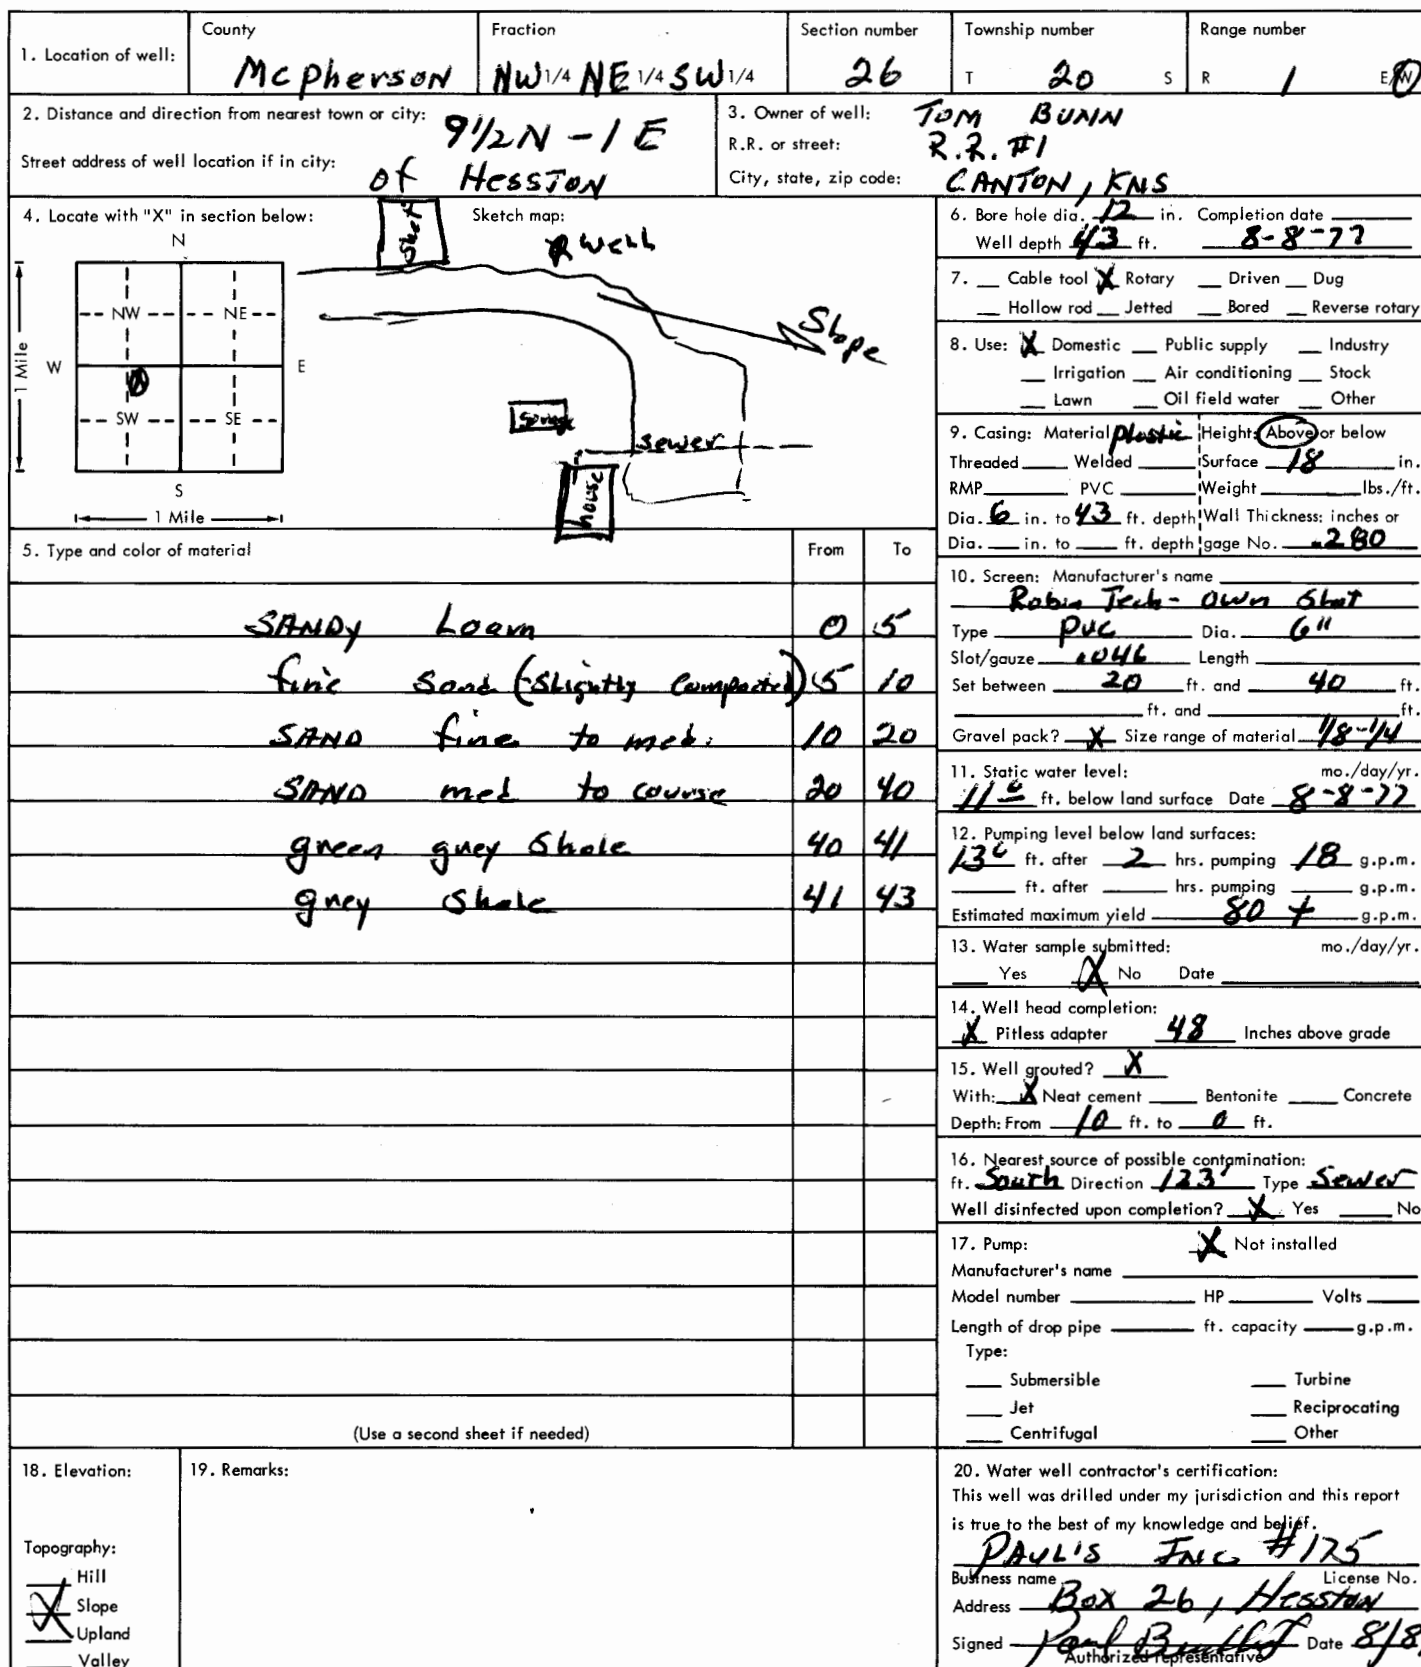 1. Location of well:
County
McPherson
Fraction
NW 1/4 NE 1/4 SW 1/4
Section number
26
Township number
T 20 S
Range number
R 1 E/W
2. Distance and direction from nearest town or city: 9 1/2 N - 1 E
Street address of well location if in city: of Hesston
3. Owner of well: TOM BUNN
R.R. or street: R.R. #1
City, state, zip code: CANTON, KNS
4. Locate with "X" in section below:
N
NW NE
W E
SW SE
S
1 Mile
1 Mile
Sketch map:
Shet
Well
Slope
sewer
house
5. Type and color of material From To
SANDY Loam 0 5
fine Sand (Slightly Compacted) 5 10
SAND fine to med. 10 20
SAND med to course 20 40
green grey Shale 40 41
grey Shale 41 43
(Use a second sheet if needed)
6. Bore hole dia. 12 in. Completion date
Well depth 43 ft. 8-8-77
7. __ Cable tool X Rotary __ Driven __ Dug
__ Hollow rod __ Jetted __ Bored __ Reverse rotary
8. Use: X Domestic __ Public supply __ Industry
__ Irrigation __ Air conditioning __ Stock
__ Lawn __ Oil field water __ Other
9. Casing: Material plastic Height: Above or below
Threaded __ Welded __ Surface 18 in.
RMP __ PVC __ Weight __ lbs./ft.
Dia. 6 in. to 43 ft. depth Wall Thickness: inches or
Dia. __ in. to __ ft. depth gage No. .280
10. Screen: Manufacturer's name
Robin Tech - own Slot
Type PVC Dia. 6"
Slot/gauze .046 Length
Set between 20 ft. and 40 ft.
__ ft. and __ ft.
Gravel pack? X Size range of material 1/8-1/4
11. Static water level: mo./day/yr.
11 6 ft. below land surface Date 8-8-77
12. Pumping level below land surfaces:
13 6 ft. after 2 hrs. pumping 18 g.p.m.
__ ft. after __ hrs. pumping __ g.p.m.
Estimated maximum yield 80 + g.p.m.
13. Water sample submitted: mo./day/yr.
__ Yes X No Date
14. Well head completion:
X Pitless adapter 48 Inches above grade
15. Well grouted? X
With: X Neat cement __ Bentonite __ Concrete
Depth: From 10 ft. to 0 ft.
16. Nearest source of possible contamination:
ft. South Direction 123' Type Sewer
Well disinfected upon completion? X Yes __ No
17. Pump: X Not installed
Manufacturer's name
Model number __ HP __ Volts __
Length of drop pipe __ ft. capacity __ g.p.m.
Type:
__ Submersible __ Turbine
__ Jet __ Reciprocating
__ Centrifugal __ Other
18. Elevation:
Topography:
__ Hill
X Slope
__ Upland
__ Valley
19. Remarks:
20. Water well contractor's certification:
This well was drilled under my jurisdiction and this report
is true to the best of my knowledge and belief.
PAUL'S INC #175
Business name License No.
Address Box 26, Hesston
Signed Paul Date 8/8
Authorized representative